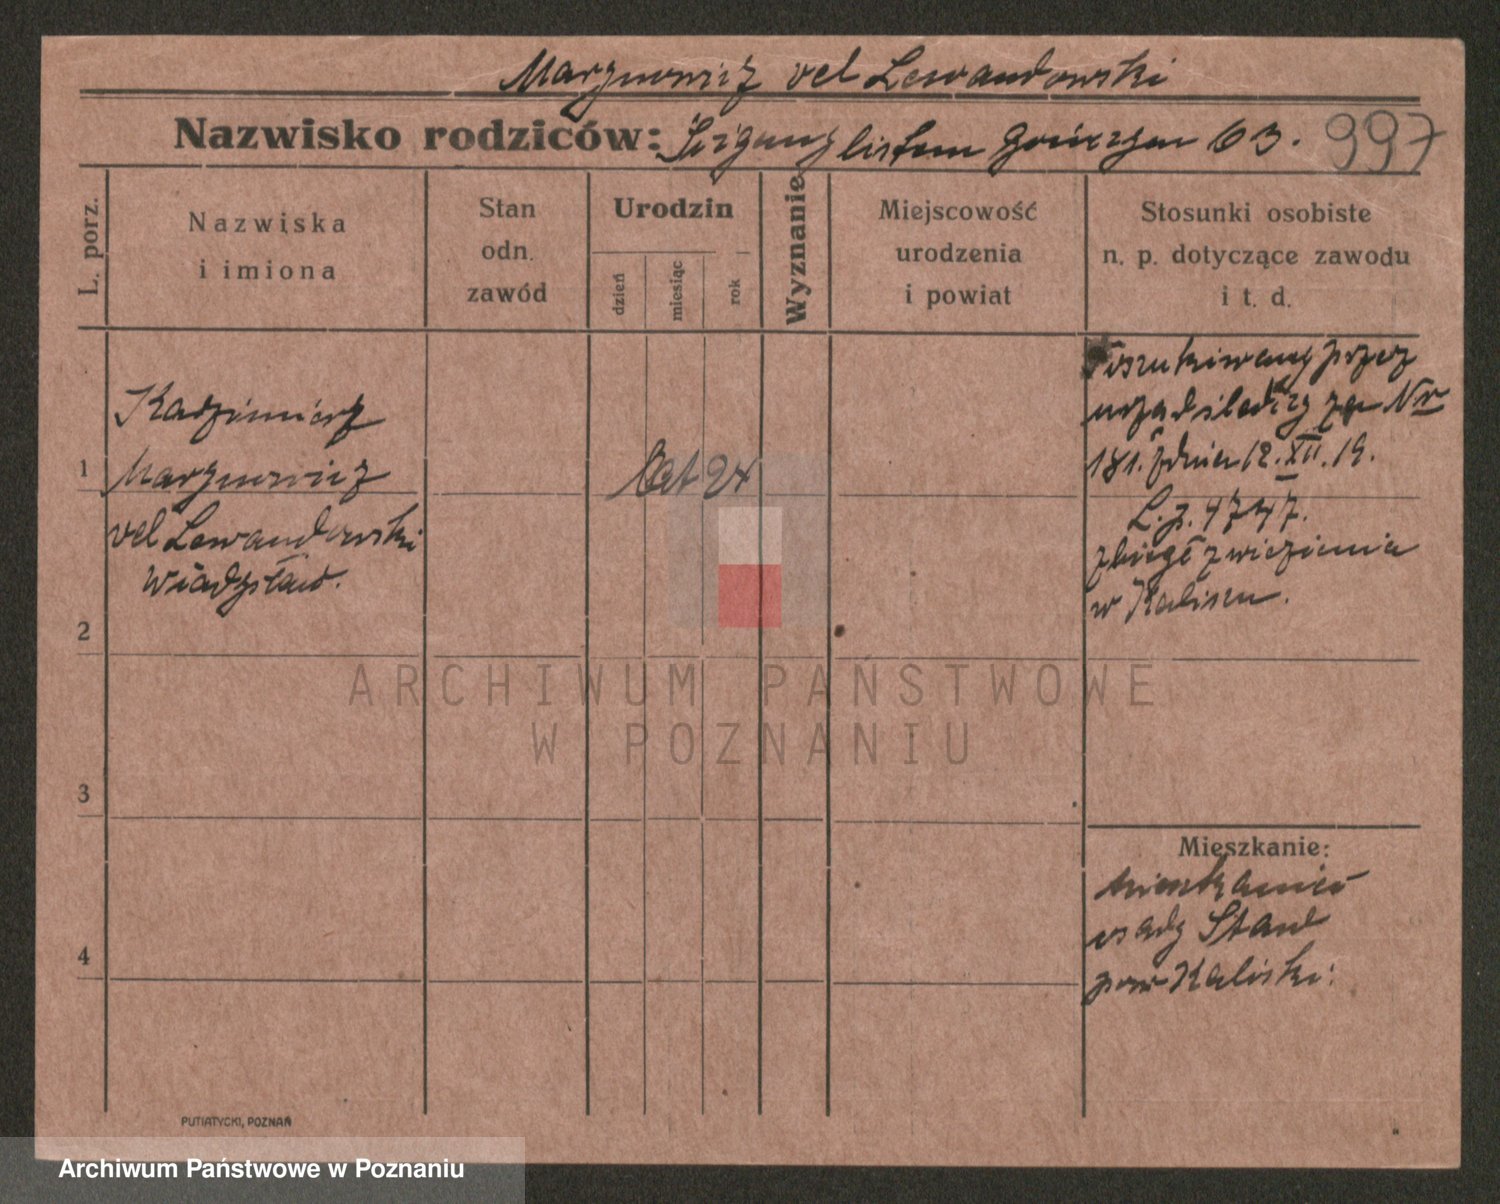 Marznowicz vel Lewandowski
Nazwisko rodziców: Ścigany listem gończym 63. 997
L. porz.
Nazwiska
i imiona
Stan
odn.
zawód
Urodzin
dzień
miesiąc
rok
Wyznanie
Miejscowość
urodzenia
i powiat
Stosunki osobiste
n. p. dotyczące zawodu
i t. d.
Kazimierz
1 Marznowicz
vel Lewandowski
Władysław.
lat 24
Poszukiwany przez
urząd śledczy za Nr
181. z dnia 12. XII. 19.
L. z. 4747.
zbiegł z więzienia
w Kaliszu.
2
3
4
Mieszkanie:
mieszkaniec
osady Staw
pow Kaliski.
PUTIATYCKI, POZNAŃ
ARCHIWUM PAŃSTWOWE
W POZNANIU
Archiwum Państwowe w Poznaniu